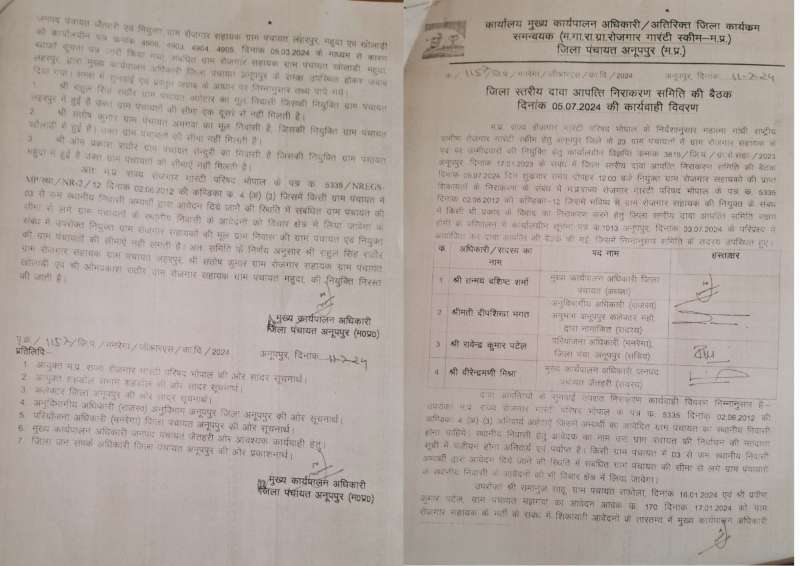 जनपद पंचायत जैतहरी एवं नियुक्त ग्राम रोजगार सहायक ग्राम पंचायत लहरपुर, महुदा एवं खोलाड़ी
को कार्यालयीन पत्र क्रमांक 4906, 4903, 4904, 4905, दिनांक 05.03.2024 के माध्यम से कारण
बताओ सूचना पत्र जारी किया गया, संबंधित ग्राम रोजगार सहायक ग्राम पंचायत खोलाड़ी महुदा,
लहरपुर, द्वारा मुख्य कार्यपालन अधिकारी जिला पंचायत अनूपपुर के समक्ष उपस्थित होकर जवाब
दिया गया। समक्ष में सुनवाई एवं प्रस्तुत जवाब के आधार पर निम्नानुसार तथ्य पाये गये।
1. श्री राहुल सिंह राठौर ग्राम पंचायत का मूल निवासी जिसकी नियुक्ति ग्राम पंचायत
लहरपुर में हुई है उक्त ग्राम पंचायतों की सीमा एक दूसरे से नहीं मिलती है।
2. श्री संतोष कुमार ग्राम पंचायत अमगवां का मूल निवासी है, जिसकी नियुक्ति ग्राम पंचायत
खोलाड़ी में हुई है। उक्त ग्राम पंचायतों की सीमा नहीं मिलती है।
3. श्री ओम प्रकाश राठौर ग्राम पंचायत सेन्दुरी का निवासी है जिसकी नियुक्ति ग्राम पंचायत
महुदा में हुई है उक्त ग्राम पंचायतों की सीमाएं नहीं मिलती है।
अतः म.प्र. राज्य रोजगार गारंटी परिषद भोपाल के पत्र क. 5335/NREGS-
/NR-2/12 दिनांक 02.06.2012 की कण्डिका क. 4 (अ) (3) जिसमें किसी ग्राम पंचायत में
03 से कम स्थानीय निवासी अभ्यर्थी द्वारा आवेदन दिये जाने की स्थिति में संबंधित ग्राम पंचायत की
सीमा से लगे ग्राम पंचायतों के स्थानीय निवासी के आवेदनों को विचार क्षेत्र में लिया जायेगा के
संबंध में उपरोक्त नियुक्त ग्राम रोजगार सहायकों की मूल ग्राम निवास की ग्राम पंचायत एवं नियुक्त
की ग्राम पंचायतों की सीमाएं नहीं लगती है। अतः समिति के निर्णय अनुसार श्री राहुल सिंह राठौर
ग्राम रोजगार सहायक ग्राम पंचायत लहरपुर, श्री संतोष कुमार ग्राम रोजगार सहायक ग्राम पंचायत
खोलाड़ी एवं श्री ओमप्रकाश राठौर ग्राम रोजगार सहायक ग्राम पंचायत महुदा, की नियुक्ति निरस्त
की जाती है।
मुख्य कार्यपालन अधिकारी
जिला पंचायत अनूपपुर (म०प्र०)
पृ.क्र./1157/जि.पं./मनरेगा/जीआरएस/का.वि./2024 अनूपपुर, दिनांक 11-7-24
प्रतिलिपि:-
1. आयुक्त म.प्र. राज्य रोजगार गारंटी परिषद भोपाल की ओर सादर सूचनार्थ।
2. आयुक्त शहडोल संभाग शहडोल की ओर सादर सूचनार्थ।
3. कलेक्टर जिला अनूपपुर की ओर सादर सूचनार्थ।
4. अनुविभागीय अधिकारी (राजस्व) अनुविभाग अनूपपुर जिला अनूपपुर की ओर सूचनार्थ।
5. परियोजना अधिकारी (मनरेगा) जिला पंचायत अनूपपुर की ओर सूचनार्थ।
6. मुख्य कार्यपालन अधिकारी जनपद पंचायत जैतहरी ओर आवश्यक कार्यवाही हेतु।
7. जिला जन संपर्क अधिकारी जिला पंचायत अनूपपुर की ओर प्रकाशनार्थ।
मुख्य कार्यपालन अधिकारी
जिला पंचायत अनूपपुर (म०प्र०)
कार्यालय मुख्य कार्यपालन अधिकारी/अतिरिक्त जिला कार्यक्रम
समन्वयक (म.गा.रा.ग्रा.रोजगार गारंटी स्कीम–म.प्र.)
जिला पंचायत अनूपपुर (म.प्र.)
क्र./1157/जि.पं./मनरेगा/जीआरएस/का.वि./2024 अनूपपुर, दिनांक 11-7-24
जिला स्तरीय दावा आपत्ति निराकरण समिति की बैठक
दिनांक 05.07.2024 की कार्यवाही विवरण
म.प्र. राज्य रोजगार गारंटी परिषद भोपाल के निर्देशानुसार महात्मा गांधी राष्ट्रीय
ग्रामीण रोजगार गारंटी स्कीम हेतु अनूपपुर जिले के 23 ग्राम पंचायतों में ग्राम रोजगार सहायक के
पद पर उम्मीदवारों की नियुक्ति हेतु कार्यालयीन विज्ञप्ति क्रमांक 3815/जि.पं./ग्रा.रो.सहा/2023
अनूपपुर दिनांक 17.01.2023 के संबंध में जिला स्तरीय दावा आपत्ति निराकरण समिति की बैठक
दिनांक 05.07.2024 दिन शुक्रवार समय दोपहर 12:00 बजे नियुक्त ग्राम रोजगार सहायकों की प्राप्त
शिकायतों के निराकरण के संबंध में म.प्र.राज्य रोजगार गारंटी परिषद के पत्र क. 5335
दिनांक 02.06.2012 की कण्डिका-12 जिसमें भविष्य में ग्राम रोजगार सहायक की नियुक्ति के संबंध
में किसी भी प्रकार के विवाद का निराकरण करने हेतु जिला स्तरीय दावा आपत्ति समिति सक्षम
होगी के परिपालन में कार्यालयीन सूचना पत्र क.1013 अनूपपुर दिनांक 03.07.2024 के परिप्रेक्ष्य में
आयोजित कर दावा आपत्ति की बैठक की गई, जिसमें निम्नानुसार समिति के सदस्य उपस्थित हुए।
क. अधिकारी/सदस्य का नाम पद नाम हस्ताक्षर
1 श्री तन्मय वशिष्ट शर्मा मुख्य कार्यपालन अधिकारी जिला पंचायत (अध्यक्ष)
2 श्रीमती दीपशिखा भगत अनुविभागीय अधिकारी (राजस्व) अनुभाग अनूपपुर कलेक्टर महो. द्वारा नामांकित (सदस्य)
3 श्री रावेन्द्र कुमार पटेल परियोजना अधिकारी (मनरेगा), जिला पंचा अनूपपुर (सचिव)
4 श्री वीरेन्द्रमणी मिश्रा मुख्य कार्यपालन अधिकारी जनपद पंचायत जैतहरी (सदस्य)
दावा आपत्तियों के सुनवाई उपरांत निराकरण कार्यवाही विवरण निम्नानुसार है-
उपरोक्त म.प्र. राज्य रोजगार गारंटी परिषद भोपाल के पत्र क. 5335 दिनांक 02.06.2012 की
कण्डिका 4 (अ) (3) अनिवार्य अर्हताएं जिसमें अभ्यर्थी का आवेदित ग्राम पंचायत का स्थानीय निवासी
होना चाहिये। स्थानीय निवासी हेतु आवेदक का नाम उस ग्राम पंचायत की निर्वाचन की मतदाता
सूची में पंजीयन होना अनिवार्य एवं पर्याप्त है। किसी ग्राम पंचायत में 03 से कम स्थानीय निवासी
अभ्यर्थी द्वारा आवेदन दिये जाने की स्थिति में संबंधित ग्राम पंचायत की सीमा से लगे ग्राम पंचायतों
के स्थानीय निवासी के आवेदनों को भी विचार क्षेत्र में लिया जावेगा।
उपरोक्त श्री रमानुज साहू, ग्राम पंचायत दिनांक 16.01.2024 एवं श्री प्रवीण
कुमार पटेल, ग्राम पंचायत मझगवां का आवेदन आवक क्र. 170 दिनांक 17.01.2024 को ग्राम
रोजगार सहायक के भर्ती के संबंध में शिकायती आवेदनों के तारतम्य में मुख्य कार्यपालन अधिकारी